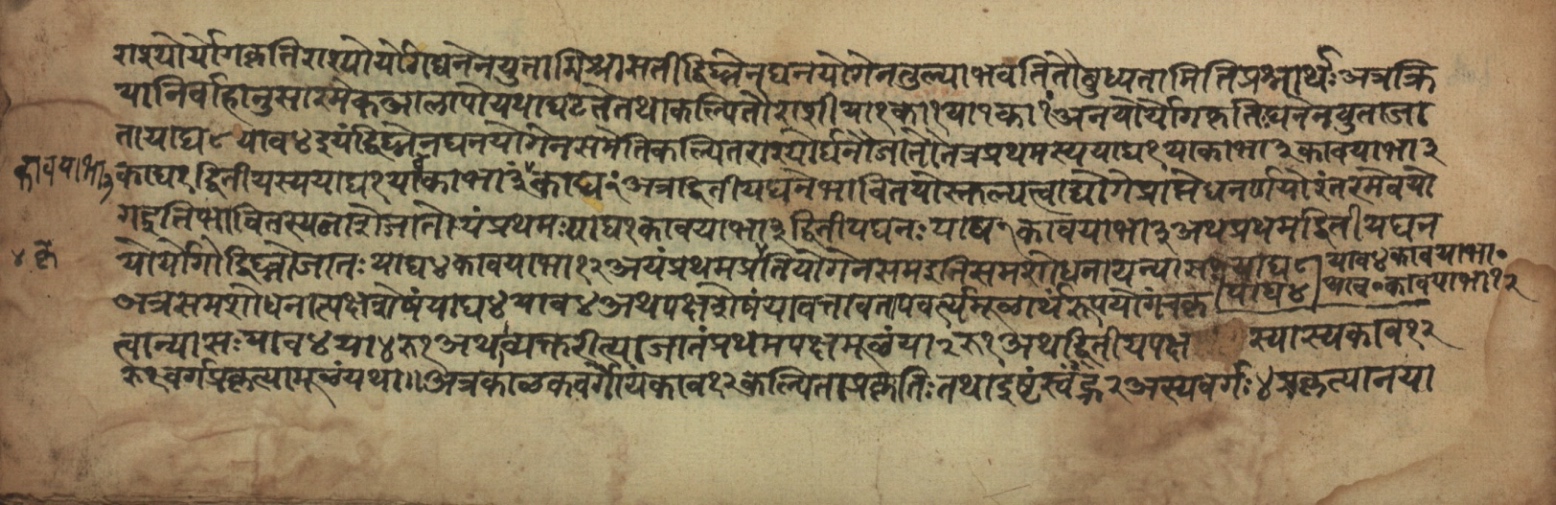 राश्योर्योगकृतिराश्योर्योगघनेनयुतामिश्रासतीद्विघ्नेनघनयोगेनतुल्याभवतितौबुध्यतामितिप्रश्नार्थः अत्रक्रि
यानिर्वाहानुसारमेकआलापोयथाघटतेतथाकल्पितौराशीया१का१या१का१ं अनयोर्योगकृतिःघनेनयुताजा
तायाघ८याव४इयंद्विघ्नेनघनयोगेनसमेतिकल्पितराश्योर्घनौजातौतत्रप्रथमस्ययाघ१याकाभा३कावयाभा३
काघ१द्वितीयस्ययाघ१याकाभा३ं काघ१ं अत्राद्वितीयघनेभावितयोस्तुल्यत्वाद्योगेप्राप्तेधनर्णयोरंतरमेवयो
कावयाभा३
गइतिभावितस्यनाशेजातोयंप्रथमःयाघ१कावयाभा३द्वितीयघनःयाघ१कावयाभा३अथप्रथमद्वितीयघन
योर्योगोद्विघ्नोजातःयाघ४कावयाभा१२अयंप्रथमप्रतियोगेनसमइतिसमशोधनायन्यासःयाघ८याव४कावयाभा०
याघ४याव०कावयाभा१२
अत्रसमशोधनात्पक्षशेषंयाघ४याव४अथपक्षशेषंयावत्तावतापवर्त्यमूलार्थंरूपयोगंचकृ
त्वान्यासःयाव४या४रू१अथाव्यक्तरीत्याजातंप्रथमपक्षमूलंया२रू१अथद्वितीयपक्ष स्यास्यकाव१२
रू१वर्गप्रकृत्यामूलंयथा॥अत्रकालकवर्गोयंकाव१२कल्पिताप्रकृतिःतथाइष्टंह्रस्वं२अस्यवर्गः४प्रकृत्यानया